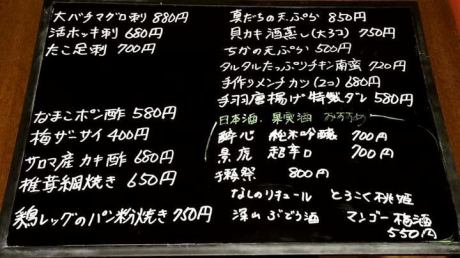 大バチマグロ刺 880円
活ホッキ刺 680円
たこ足刺 700円
なまこポン酢 580円
梅ザーサイ 400円
サロマ産カキ酢 680円
椎茸網焼き 650円
鶏レッグのパン粉焼き 750円
真だちの天ぷら 850円
貝カキ酒蒸し(大3コ) 750円
ちかの天ぷら 500円
タルタルたっぷりチキン南蛮 720円
手作りメンチカツ(2コ) 680円
手羽唐揚げ特製ダレ 580円
日本酒、果実酒 おすすめ
酔心 純米吟醸 700円
景虎 超辛口 700円
獺祭 800円
なしのリキュール とろこく桃姫
深山ぶどう酒 マンゴー梅酒
550円